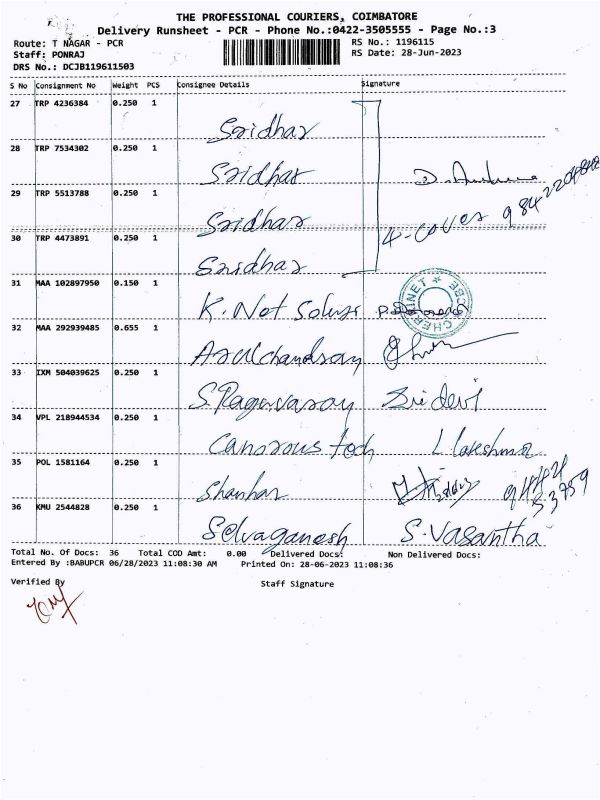 THE PROFESSIONAL COURIERS, COIMBATORE
Delivery Runsheet - PCR - Phone No.:0422-3505555 - Page No.:3
Route: T NAGAR - PCR RS No.: 1196115
Staff: PONRAJ RS Date: 28-Jun-2023
DRS No.: DCJB119611503
S No Consignment No Weight PCS Consignee Details Signature
27 TRP 4236384 0.250 1
Sridhar
28 TRP 7534302 0.250 1
Sridhar
29 TRP 5513788 0.250 1
Sridhar 4-cover
30 TRP 4473891 0.250 1
Sridhar
31 MAA 102897950 0.150 1
K. Net Solus
32 MAA 292939485 0.655 1
Arulchandran
33 IXM 504039625 0.250 1
S. Ragavaray Sridevi
34 VPL 218944534 0.250 1
Canorous tech Lakeshma
35 POL 1581164 0.250 1
Shankar
36 KMU 2544828 0.250 1
Selvaganesh S. Vasantha
Total No. Of Docs: 36 Total COD Amt: 0.00 Delivered Docs: Non Delivered Docs:
Entered By :BABUPCR 06/28/2023 11:08:30 AM Printed On: 28-06-2023 11:08:36
Verified By Staff Signature